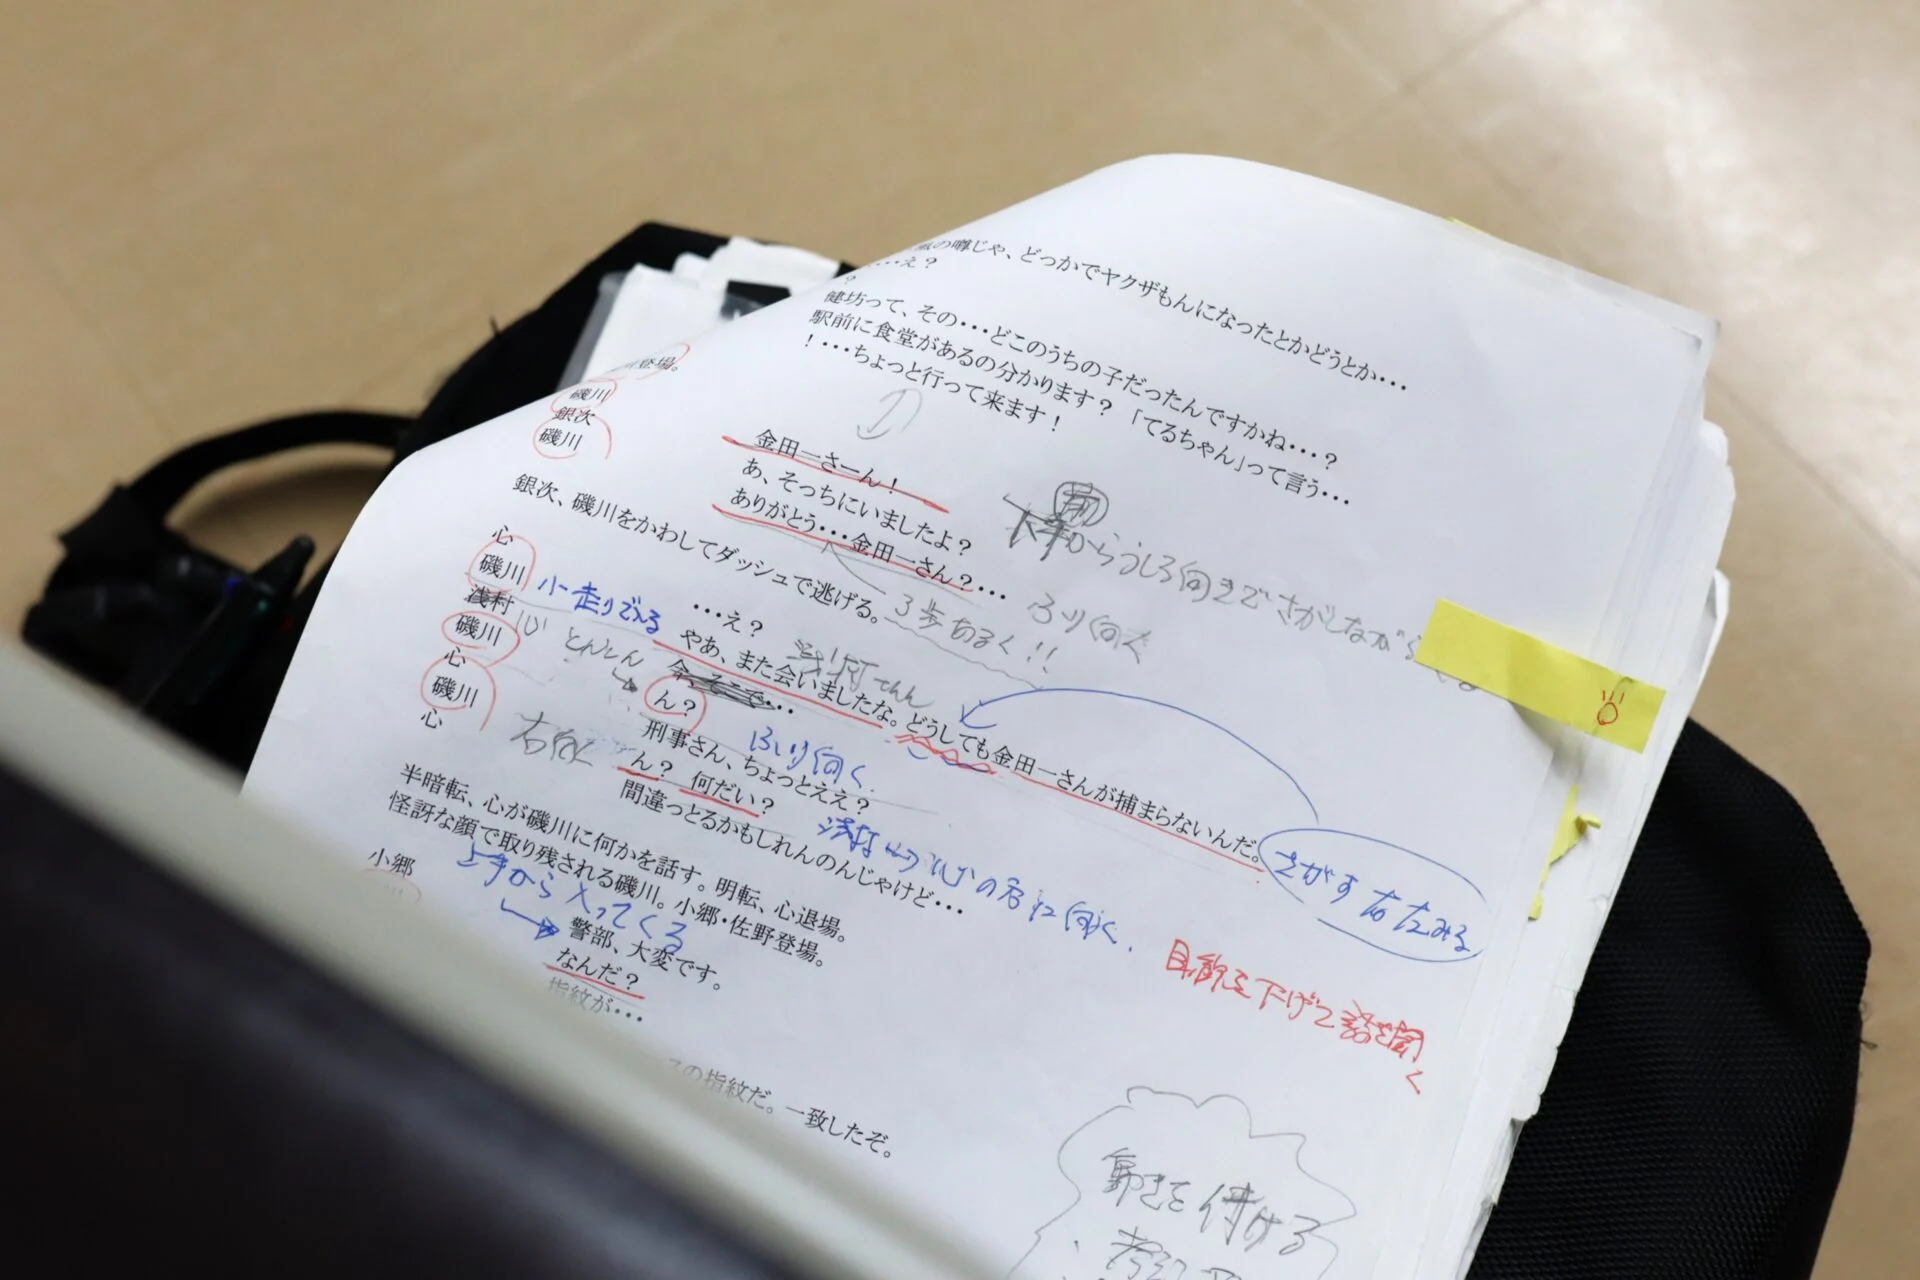 の噂じゃ、どっかでヤクザもんになったとかどうとか・・・
・・・え？
？
健坊って、その・・・どこのうちの子だったんですかね・・・？
駅前に食堂があるの分かります？「てるちゃん」って言う・・・
！・・・ちょっと行って来ます！
登場。
磯川 金田一さーん！
銀次 あ、そっちにいましたよ？
磯川 ありがとう・・・金田一さん？・・・
前
からうしろ向きでさがしながら
ふり向く
3歩あるく！！
銀次、磯川をかわしてダッシュで逃げる。
心 ・・・え？
小走りでみる
磯川 やあ、また会いましたな。どうしても金田一さんが捕まらないんだ。
さがす 右左みる
浅村
磯川 ん？
ふり向く
心 刑事さん、ちょっとええ？
右向く
磯川 ん？ 何だい？
心 間違っとるかもしれんのんじゃけど・・・
の方に向く、
目線を下げて話を聞く
半暗転、心が磯川に何かを話す。明転、心退場。
怪訝な顔で取り残される磯川。小郷・佐野登場。
上手から入ってくる
小郷 警部、大変です。
なんだ？
指紋が・・・
の指紋だ。一致したぞ。
動きを付ける